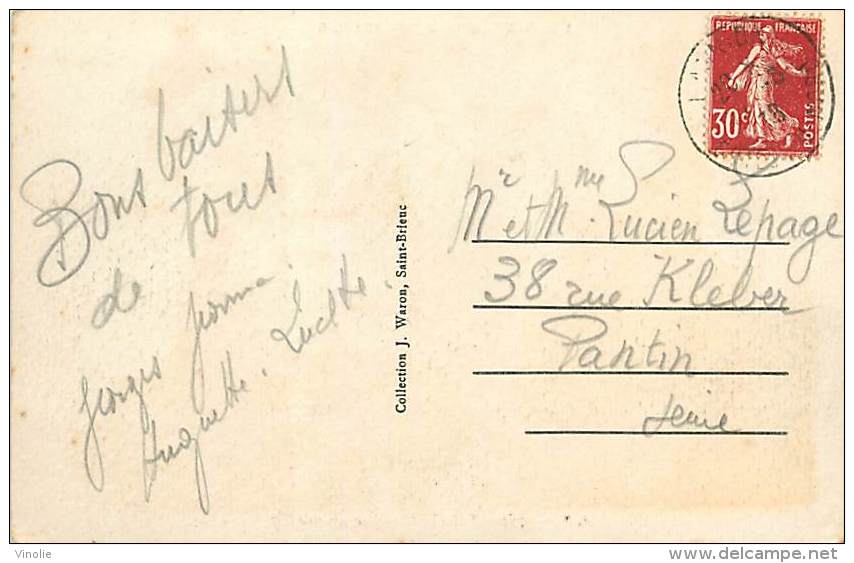 Bons baisers
de tous
Georges
Huguette. Lucette.
Collection J. Waron, Saint-Brieuc
REPUBLIQUE FRANÇAISE
30c
POSTES
Mr et Mme Lucien Lepage
38 rue Kleber
Pantin
Seine
Vinolie
http://www.delcampe.net